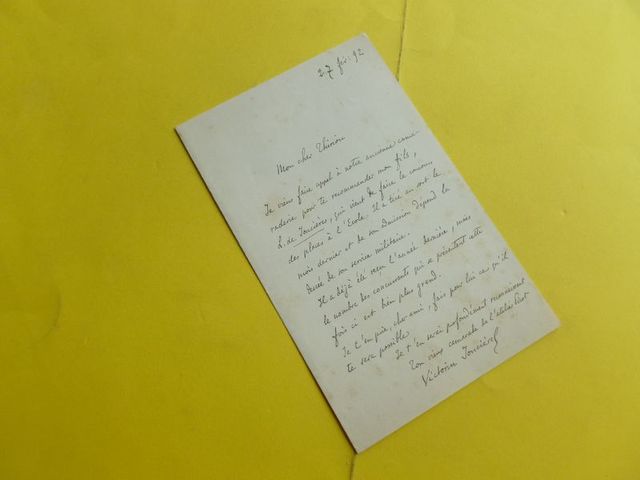 27 fév. 92
Mon cher Thirion
Je viens faire appel à notre ancienne cama-
raderie pour te recommander mon fils,
L. de Joncières, qui vient de faire le concours
des places à l'Ecole. Il a tiré au sort le
mois dernier et de son admission dépend la
durée de son service militaire.
Il a déjà été reçu l'année dernière, mais
le nombre des concurrents qui se présentent cette
fois ci est bien plus grand.
Je t'en prie, cher ami, fais pour lui ce qu'il
te sera possible.
Je t'en serai profondément reconnaissant
Ton vieux camarade de l'atelier Picot
Victorin Joncières